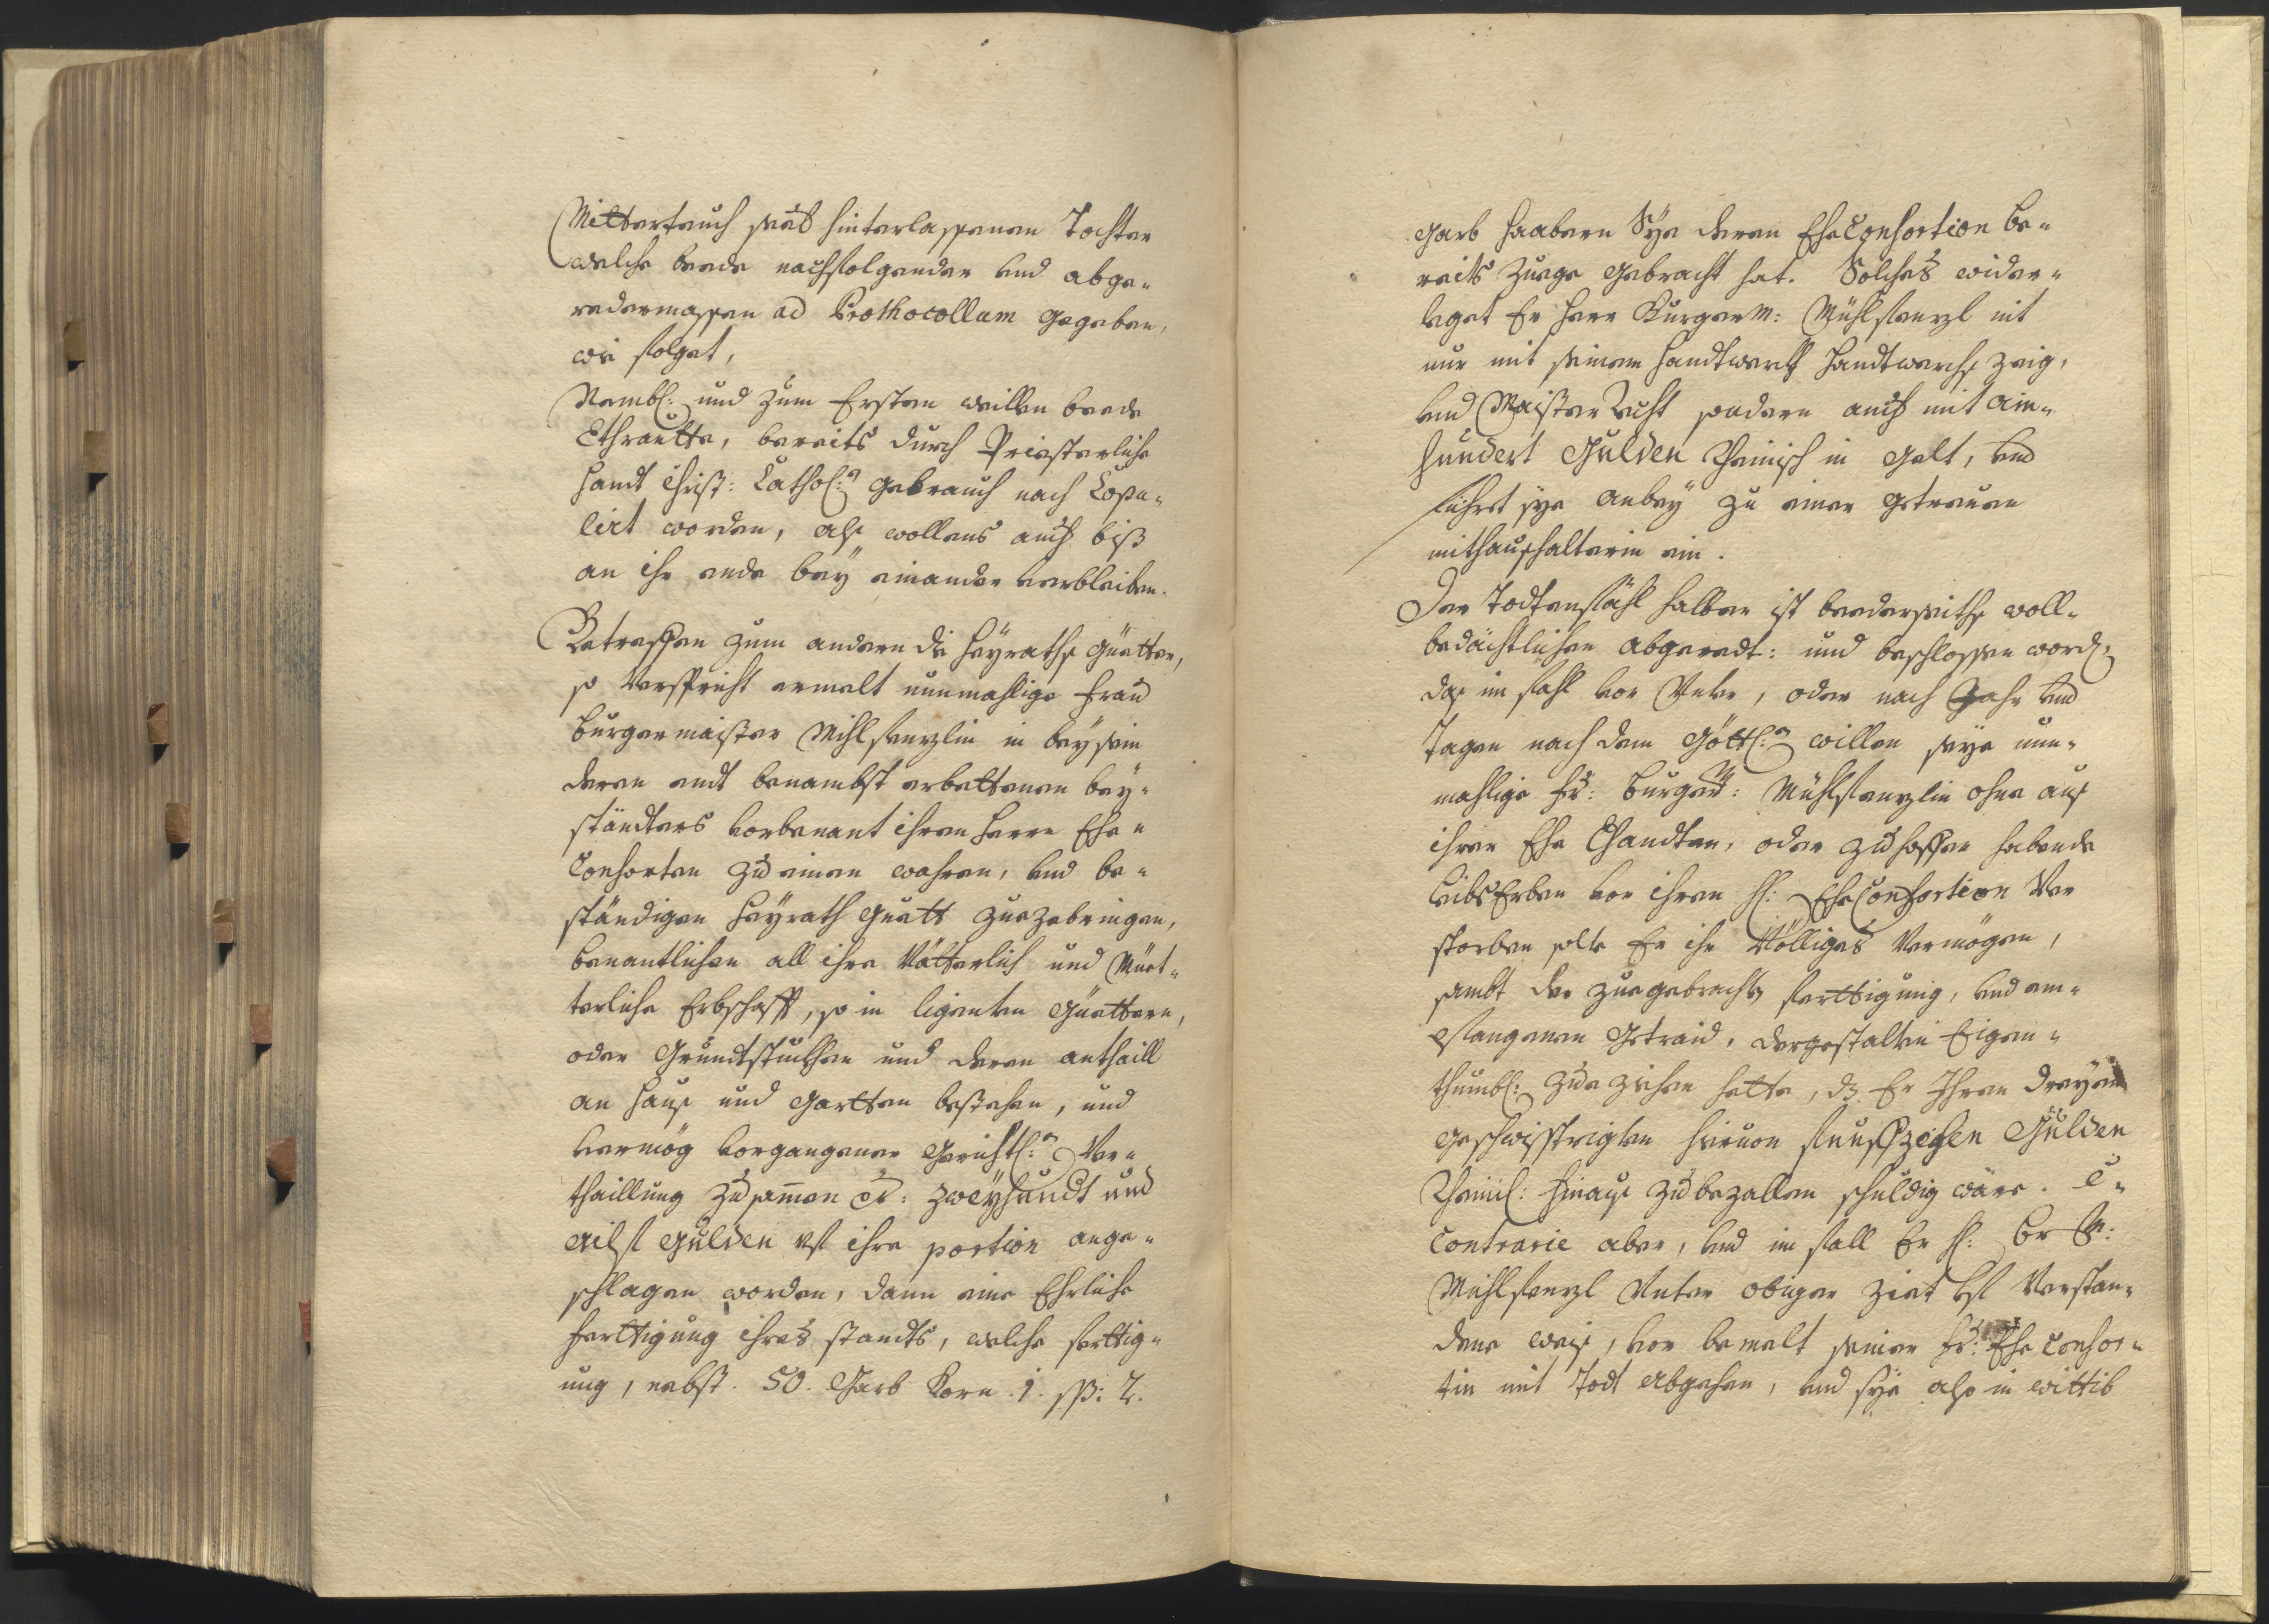 Mitterteuch seel: hinterlassenen Tochter
welche beede nachfolgender und abge-
redermassen ad Prothocollum gegeben,
wie folget,
Nembl: und zum Ersten weillen beede
Ethrautte, bereits durch Priesterliche
Handt Christ: Cathol: gebrauch nach Copu-
lirt worden, als wollens auch biß
an ihr ende bey einander verbleiben.
Betreffen zum andern die Heyraths Güetter,
so verspricht ermelt nunmahlige Frau
Burgermaister Mihlstenzlin in beysein
deren endt benambst erbettenen bey-
ständters vorbenant ihren Herrn Ehe-
Consorten zu einen wahren, und be-
ständigen Heyrath Guett zuezebringen,
benantlichen all ihre Vätterlich und Müet-
terliche Erbschafft, so in ligenten Güettern,
oder Grundtstuckhen und deren antheill
an Hauß und Gartten bestehen, und
vermög vorgangener Gerichtl: Ver-
theillung zusammen per: zweyhundt und
ailf Gulden uf ihre portion ange-
schlagen worden, dann eine Ehrliche
Ferttigung ihres standts, welche ferttig-
ung, nebst. 50. Garb Korn. 1. ß: 2.
garb Haabern Sye deren EheConsortion be-
reits zuege gebracht hat. Solches wider-
leget Er Herr Burgerm: Mühlstenzl nit
nur mit seinem Handtwerkh Handtwerchs zeig,
und Maister recht sondern auch mit ain-
hundert Gulden Rheinisch in Gelt, und
führet sye anbey zu einer getreuen
mithaußhalterin ein.
Der Todtenfähl halber ist beederseiths woll-
bedächtlichen abgeredt: und beschlossen word:
daß im fahl vor, oder nach Jahr und
Tagen nach dem Göttl: willen seye nun-
mahlige Fr: Burgerm: Mühlstenzlin ohne auß
ihrer Ehe Ehandten, oder zu hoffen habende
leibs Erben vor ihren H: EheConsortion Ver
storben solte Er ihr Völliges Vermögen,
sambt der zuegebrachten ferttigung, und em-
pfangenen Getraid, dergestalten Eigen-
thumbl: zue ziehen hette, dz Er Ihren dreyen
geschwisstrigten hievon fünffzehen Gulden
Rheinl: hinauß zu bezallen schuldig wäre. E-
Contrarie aber, und im fall Er H: Br M:
Mühlstenzl Unter obiger Zeit uf Verstan-
dene weiß, vor bemelt seiner Fr: Ehe Consor-
tin mit Todt abgehen, und sye also in wittib